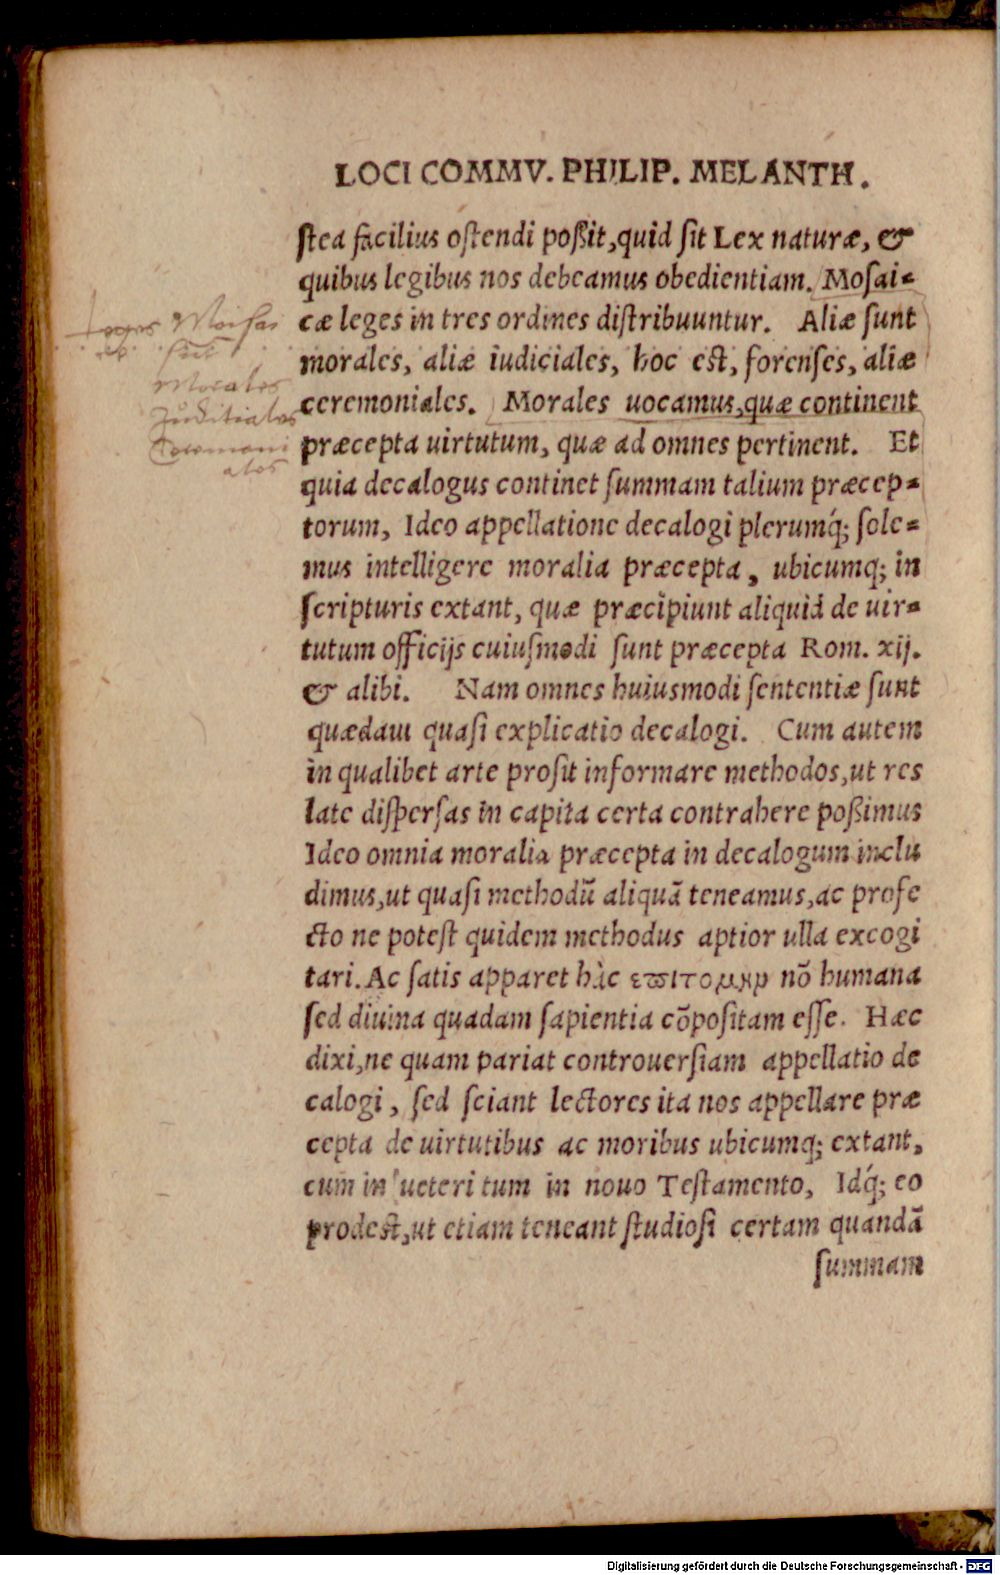 LOCI COMMV. PHILIP. MELANTH.
ſtea facilius oſtendi poßit,quid ſit Lex naturæ, &
quibus legibus nos debeamus obedientiam. Moſai-
cæ leges in tres ordines diſtribuuntur. Aliæ ſunt
morales, aliæ iudiciales, hoc eſt, forenſes, aliæ
ceremoniales. Morales uocamus,quæ continent
præcepta uirtutum, quæ ad omnes pertinent. Et
quia decalogus continet ſummam talium præcep-
torum, Ideo appellatione decalogi plerumq́; ſole-
mus intelligere moralia præcepta, ubicumq; in
ſcripturis extant, quæ præcipiunt aliquid de uir-
tutum officijs cuiuſmodi ſunt præcepta Rom. xij.
& alibi. Nam omnes huiusmodi ſententiæ ſunt
quædam quaſi explicatio decalogi. Cum autem
in qualibet arte proſit informare methodos,ut res
late diſperſas in capita certa contrahere poßimus
Ideo omnia moralia præcepta in decalogum inclu
dimus,ut quaſi methodũ aliquã teneamus,ac profe
cto ne poteſt quidem methodus aptior ulla excogi
tari. Ac ſatis apparet hàc επιτομην nõ humana
ſed diuina quadam ſapientia cõpoſitam eſſe. Hæc
dixi,ne quam pariat controuerſiam appellatio de
calogi, ſed ſciant lectores ita nos appellare præ
cepta de uirtutibus ac moribus ubicumq; extant,
cum in ueteri tum in nouo Teſtamento, Idq́; eo
prodeſt,ut etiam teneant ſtudioſi certam quandã
ſummam
Leges Moisai
Morales
Juditiales
Ceremoni
ales
Digitalisierung gefördert durch die Deutsche Forschungsgemeinschaft - DFG